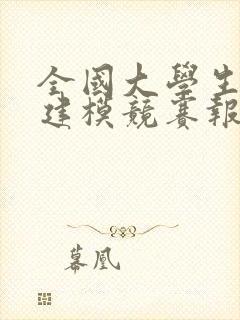 全國大學生
建模競賽報
幕凰